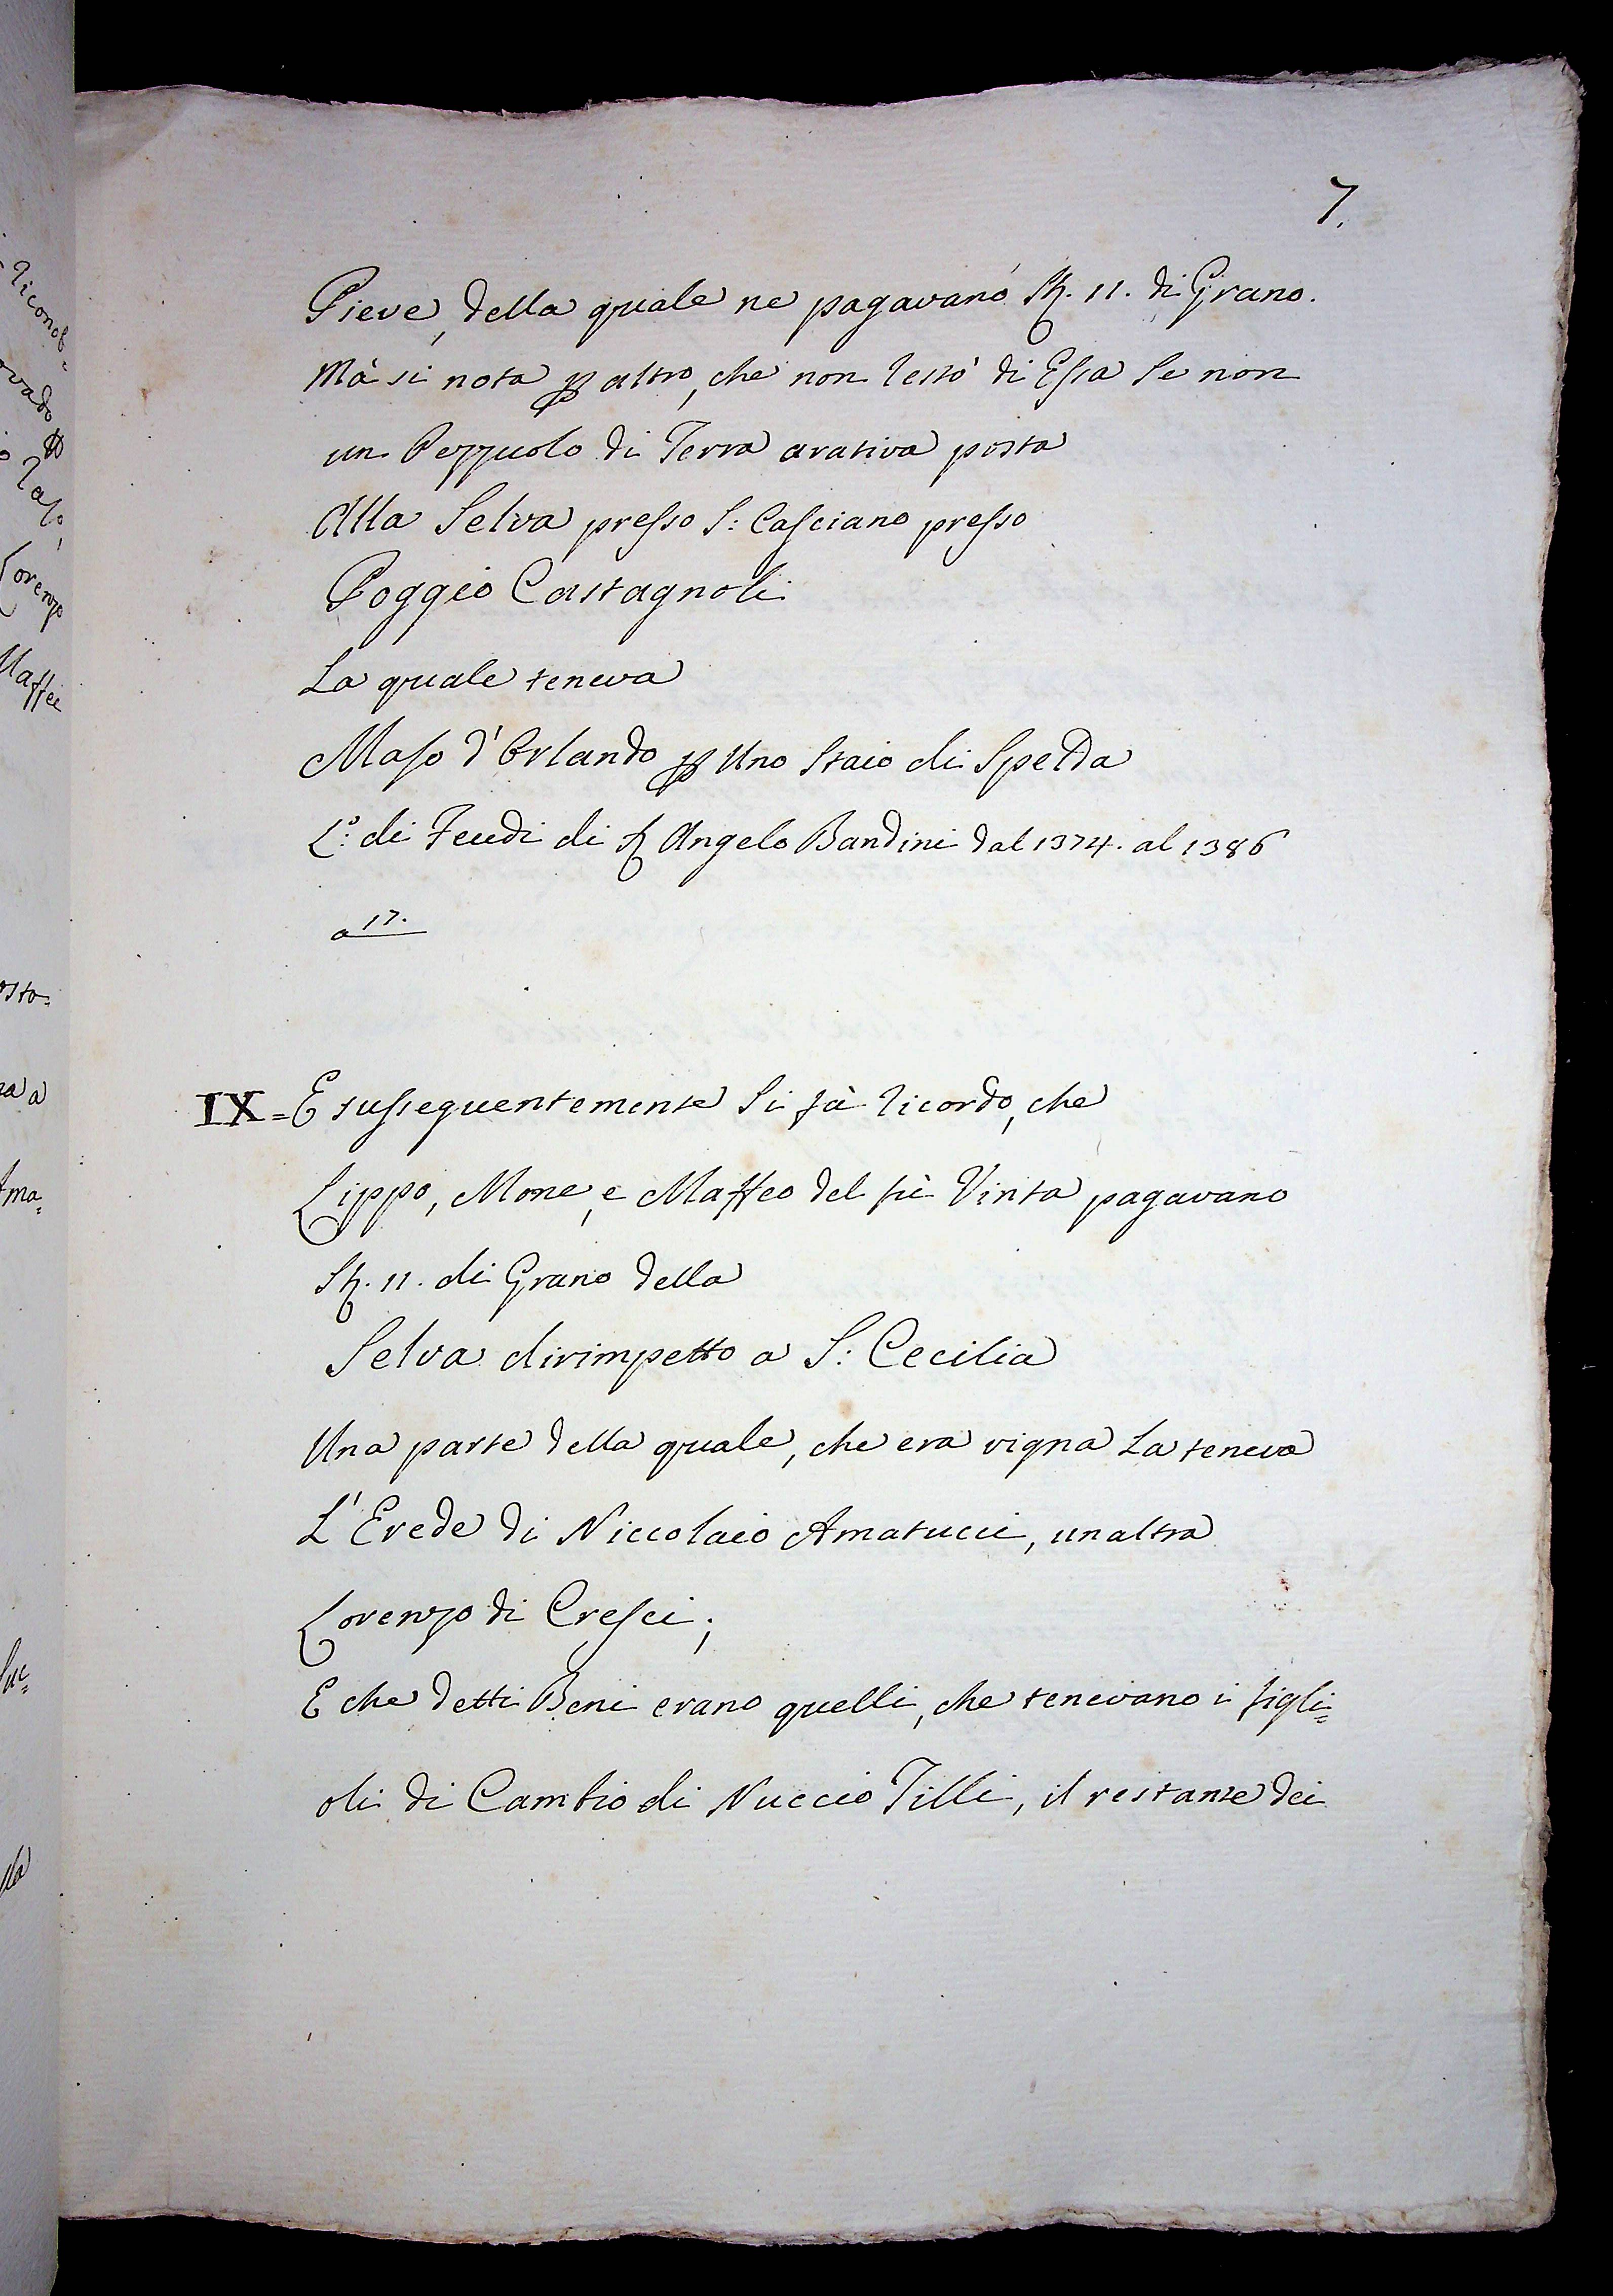 7.
Pieve, della quale ne pagavano St. 11. di Grano.
Mà si nota p altro, che non restò di Essa se non
un Pezzuolo di Terra arativa posta
Alla Selva presso S: Casciano presso
Poggio Castagnoli
La quale teneva
Maso d'Orlando p Uno Staio di Spelda
L.o di Feudi di S Angelo Bandini dal 1374. al 1386
a 17.
IX = E susseguentemente si fà ricordo, che
Lippo, Mone, e Maffeo del fù Vinta pagavano
St. 11. di Grano della
Selva dirimpetto a S: Cecilia
Una parte della quale, che era vigna La teneva
L'Erede di Niccolaio Amatucci, unaltra
Lorenzo di Cresci;
E che detti Beni erano quelli, che tenevano i figli=
oli di Cambio di Nuccio Tilli, il restante dei
Maffei
Lorenzo